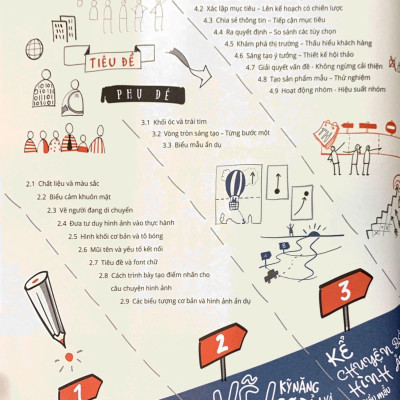 4.2 Xác lập mục tiêu – Lên kế hoạch có chiến lược
4.3 Chia sẻ thông tin – Tiếp cận mục tiêu
4.4 Ra quyết định – So sánh các tùy chọn
4.5 Khám phá thị trường – Thấu hiểu khách hàng
4.6 Sáng tạo ý tưởng – Thiết kế hội thảo
4.7 Giải quyết vấn đề - Không ngừng cải thiện
4.8 Tạo sản phẩm mẫu – Thử nghiệm
4.9 Hoạt động nhóm - Hiệu suất nhóm
TIÊU ĐỀ
PHỤ ĐỀ
3.1 Khối óc và trái tim
3.2 Vòng tròn sáng tạo – Từng bước một
3.3 Biểu mẫu ẩn dụ
2.1 Chất liệu và màu sắc
2.2 Biểu cảm khuôn mặt
2.3 Vẽ người đang di chuyển
2.4 Đưa tư duy hình ảnh vào thực hành
2.5 Hình khối cơ bản và tô bóng
2.6 Mũi tên và yếu tố kết nối
2.7 Tiêu đề và font chữ
2.8 Cách trình bày tạo điểm nhấn cho
câu chuyện hình ảnh
2.9 Các biểu tượng cơ bản và hình ảnh ẩn dụ
1
2
3
KỸ NĂNG
KỂ
CHUYỆN
HÌNH